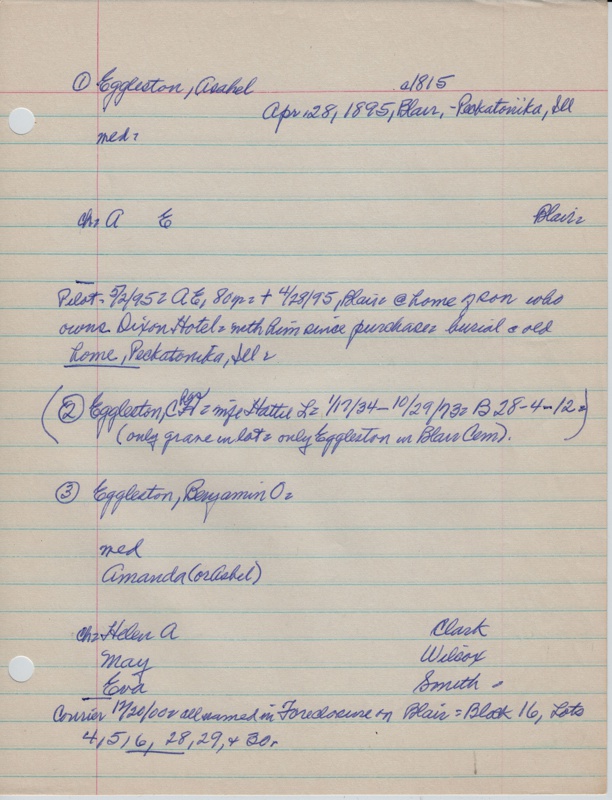 ① Eggleston, Asahel a1815
Apr. 28, 1895, Blair, - Peckatonika, Ill
med=
ch= A E Blair=
Pilot- 5/2/95= A E, 80 yr= + 4/28/95, Blair= @ home of son who
owns Dixon Hotel= with him since purchase= burial @ old
home, Peckatonika, Ill=
(② Eggleston, = wife Hattie L= 1/17/34-10/29/73= B 28-4-12=)
(only grave in lot= only Eggleston in Blair Cem).
③ Eggleston, Benjamin O=
med
Amanda (or Ashel)
ch= Helen A Clark
May Wilcox
Eva Smith =
Courier 12/20/00= all named in Foreclosure on Blair= Block 16, Lots
4, 5, 6, 28, 29, + 30.